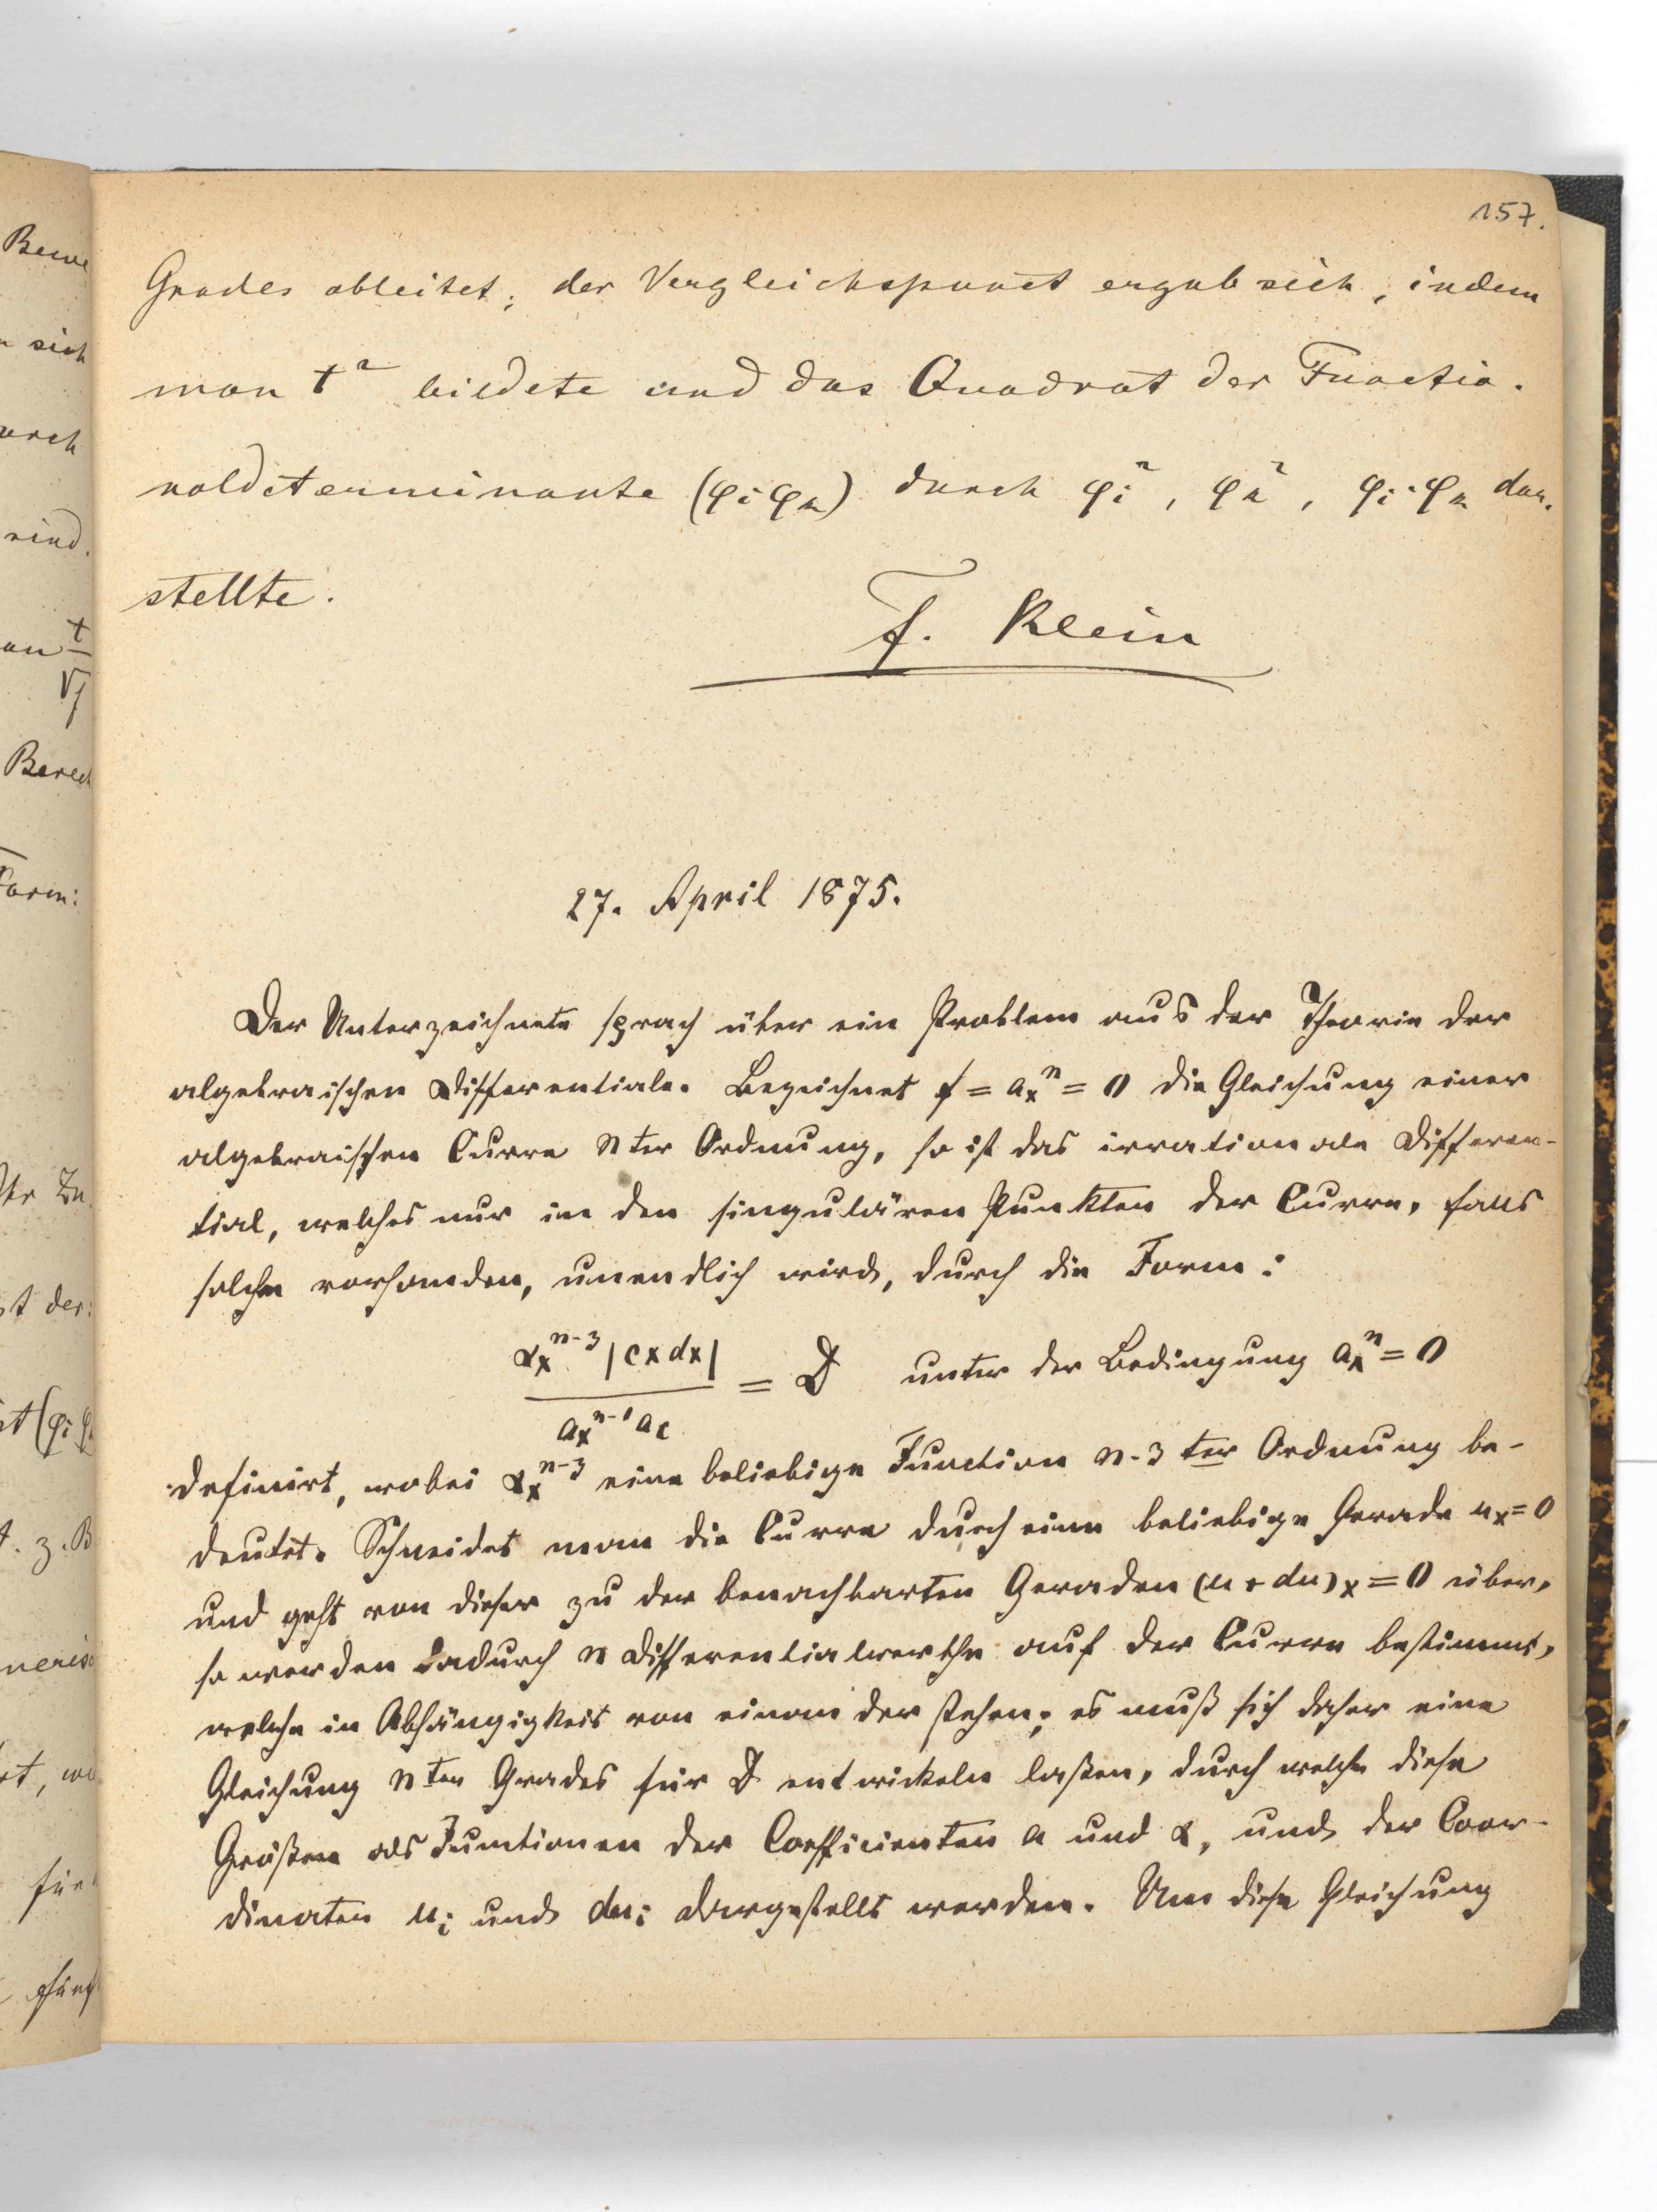 157.
Grades ableitet; der Vergleichspunct ergab sich, indem
man t² bildete und das Quadrat der Functio-
naldeterminante (φᵢ φₖ) durch φᵢ², φₖ², φᵢ·φₖ dar-
stellte.
F. Klein
27. April 1875.
Der Unterzeichnete sprach über ein Problem aus der Theorie der
algebraischen Differentiale. Bezeichnet f = aₓⁿ = 0 die Gleichung einer
algebraischen Curve nter Ordnung, so ist das irrationale Differen-
tial, welches nur in den singulären Punkten der Curve, falls
solche vorhanden, unendlich wird, durch die Form:
αₓⁿ⁻³ |c x dx| / aₓⁿ⁻¹ a_c = D unter der Bedingung aₓⁿ = 0
definirt, wobei αₓⁿ⁻³ eine beliebige Function n-3 ter Ordnung be-
deutet. Schneidet man die Curve durch eine beliebige Gerade uₓ = 0
und geht von dieser zu der benachbarten Geraden (u + du)ₓ = 0 über,
so werden dadurch n Differentialwerthe auf der Curve bestimmt,
welche in Abhängigkeit von einander stehen; es muß sich daher eine
Gleichung nten Grades für D entwickeln laßen, durch welche diese
Größen als Functionen der Coefficienten a und α, und der Coor-
dinaten uᵢ und duᵢ dargestellt werden. Um diese Gleichung
Bewe
sich
urch
sind.
an t
Berech
Form:
st der
z. B
für